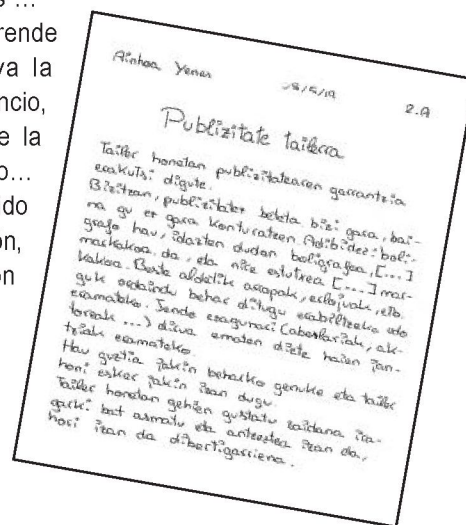 rende
va la
ncio,
e la
o...
ido
on,
ón
Ainhoa Yenes
28/5/19
2.A
Publizitate tailerra
Tailer honetan publizitatearen garrantzia
erakutsi digute.
Bizitzan, publizitatez beteta bizi gara, bai-
na gu ez gara konturatzen. Adibidez: boli-
grafo hau, idazten dudan boligrafoa, [...]
markakoa da, eta nire estutxea [...] mar-
kakoa. Beste aldetik arropak, erlojuak, etb.
guk ordaindu behar ditugu erabiltzeko edo
eramateko. Jende ezagunari (abeslariak, ak-
toreak ...) dirua ematen diete haien jan-
tziak eramateko.
Hau guztia jakin beharko genuke eta tailer
honi esker jakin izan dugu.
Tailer honetan gehien gustatu zaidana ira-
garki bat asmatu eta antzeztea izan da,
hori izan da dibertigarriena.